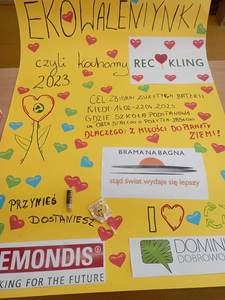 EKOWALENTYNKI
czyli kochamy RECYKLING
2023
CEL: ZBIÓRKA ZUŻYTYCH BATERII
GDZIE: SZKOŁA PODSTAWOWA
DLACZEGO: Z MIŁOŚCI DO PLANETY
ZIEMI!
BRAMA NA BAGNA
stąd świat wydaje się lepszy
PRZYNIEŚ
DOSTANIESZ
I
EMONDIS®
KING FOR THE FUTURE
DOMIN
DOBROWO